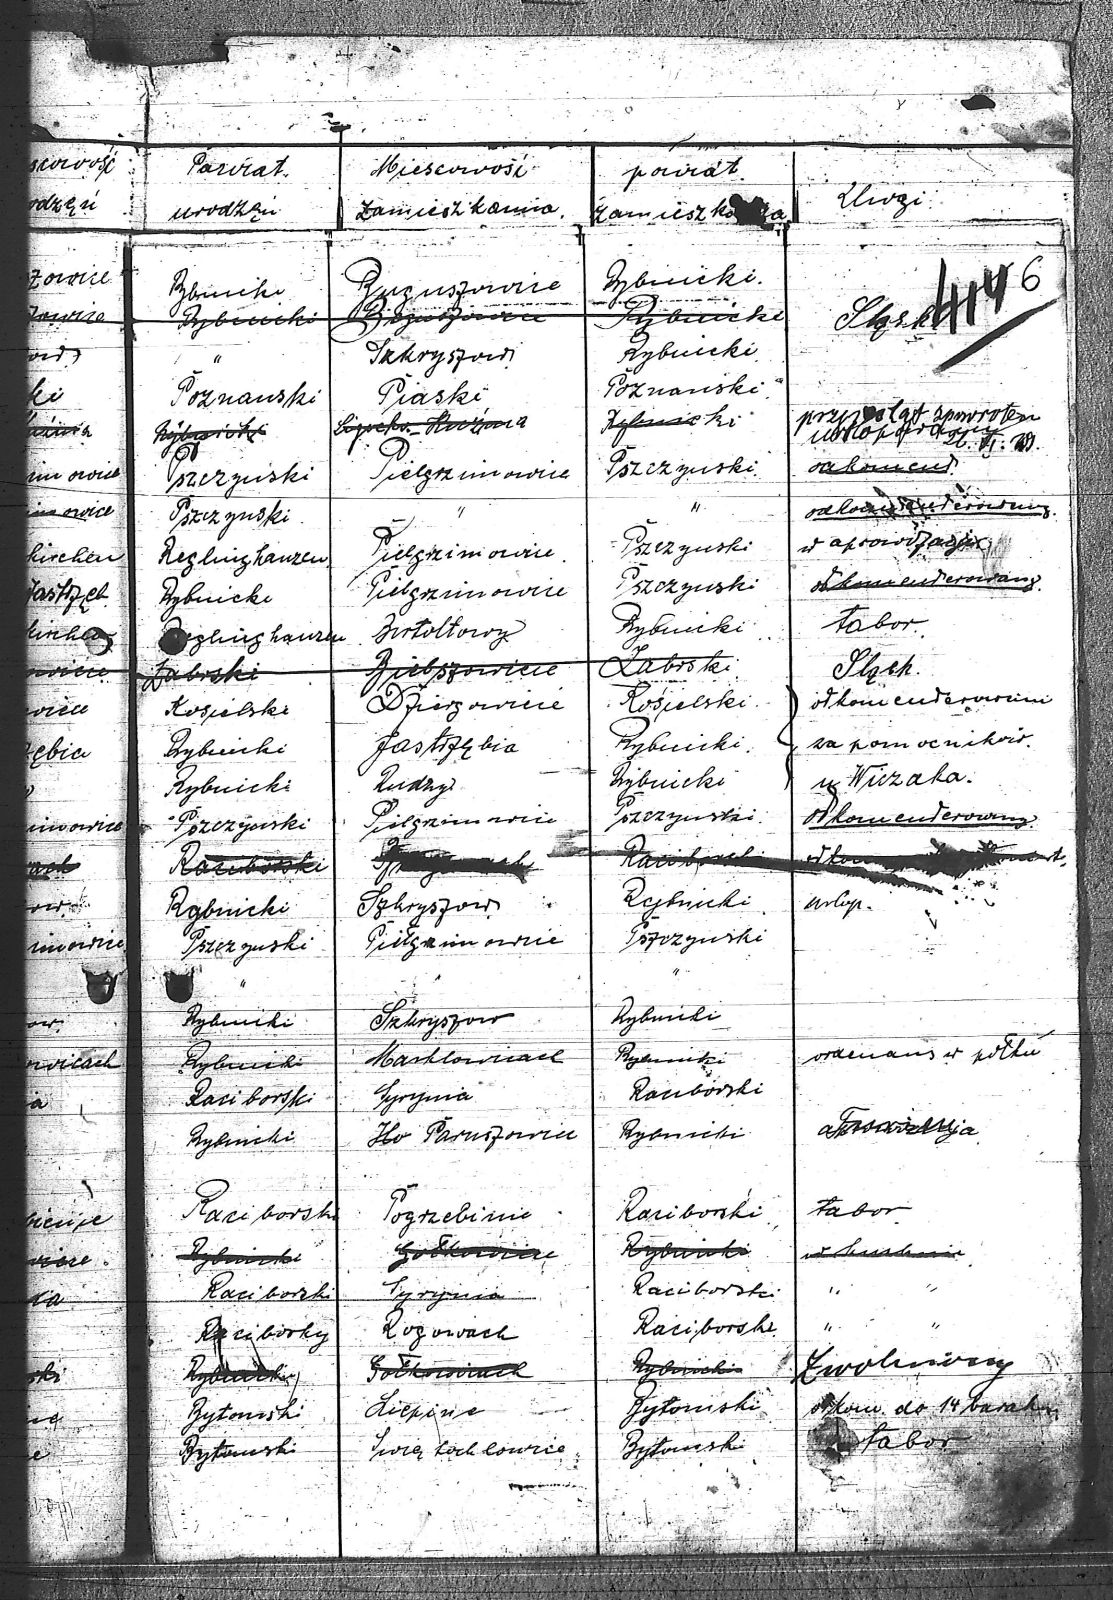 scowość Powiat. Miescowość powiat. Uwagi.
odzęń urodzęń zamieszkania. zamieszkania
6
zowice Rybnicki Boguszowice Rybnicki.
zowice Rybnicki Boguszowice Rybnicki Sląsk
" " Szkryszów Rybnicki
ki Poznanski Piaski Poznański
Rybnicki Rybnicki zpowrotem
imowice Pszczynski Pielgrzimowice Pszczynski odkomend.
imowice Pszczynski " " odkomenderowany.
kirchen Reglinghauzen Pielgrzimowice Pszczynski w aprowizacji
Jastrzęb. Rybnicki Pielgrzimowice Pszczynski odkomenderowany.
kirchen Reglinghauzen Rybnicki tabor.
owicie Zabrski Bielszowicie Zabrski Sląsk.
wice Kosielski Dzierzowicie Kosielski odkomenderowani
zębia Rybnicki Jastrzębia Rybnicki za pomocników.
Rybnicki Rudzy Rybnicki u Wiczaka.
imowice Pszczynski Pielgrzimowice Pszczynski. odkomenderowany
ach Raciborski Raciborski
ow. Rybnicki Szkryszow Rybnicki urlop.
imowice Pszczynski Pielgrzimowice Pszczynski
" " "
ow. Rybnicki Szkryszow Rybnicki
owicach Rybnicki Marklowicach Rybnicki ordenans w półku
a Raciborski Syrynia Raciborski
Rybnicki Paruszowice Rybnicki
bienie Raciborski Pogrzebinie Raciborski tabor
wice. Rybnicki Gołkowice Rybnicki w kuchnie
ia Raciborski Syrynia Raciborski " "
Raciborky Rogowach Raciborski " "
ski Rybnicki Gołkowicach Rybnicki Zwolniony
Bytomski Liepine Bytomski odkom. do 14 baraku
e Bytomski Swiętochlowice Bytomski tabor